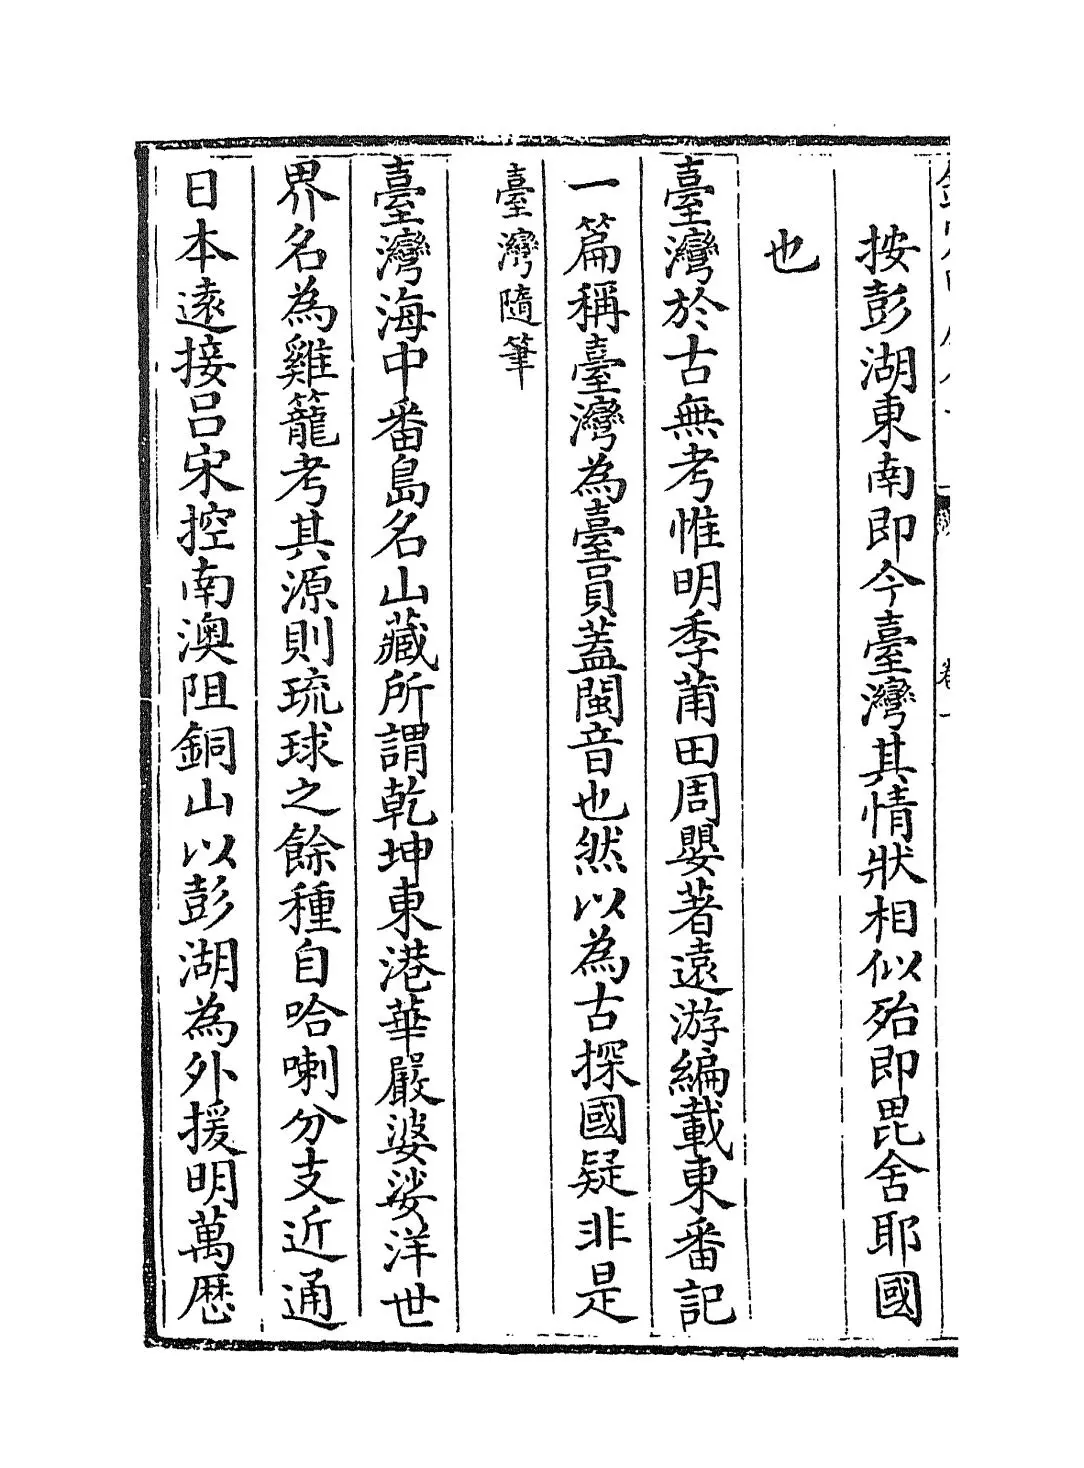 按彭湖東南即今臺灣其情狀相似殆即毘舍耶國
也
臺灣於古無考惟明季莆田周嬰著遠游編載東番記
一篇稱臺灣為臺員蓋閩音也然以為古探國疑非是
臺灣隨筆
臺灣海中番島名山藏所謂乾坤東港華嚴婆娑洋世
界名為雞籠考其源則琉球之餘種自哈喇分支近通
日本遠接呂宋控南澳阻銅山以彭湖為外援明萬歷